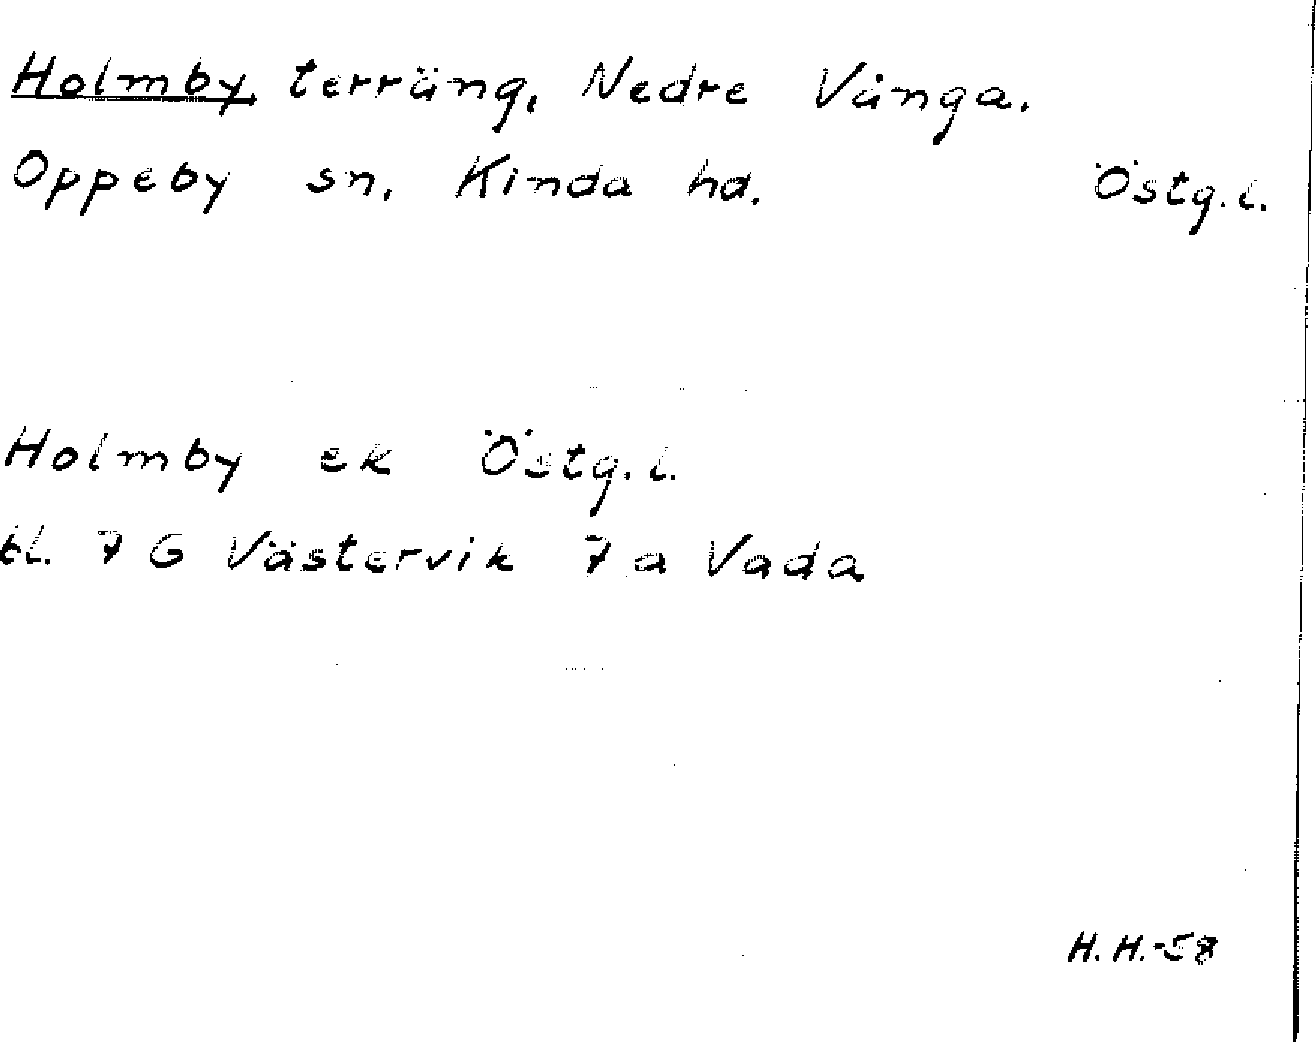 Holmby, terräng, Nedre Vånga.
Oppeby sn, Kinda hd. Östg.l.
Holmby ek Östg.l.
bl. 7 G Västervik 7 a Vada
H.H.-58